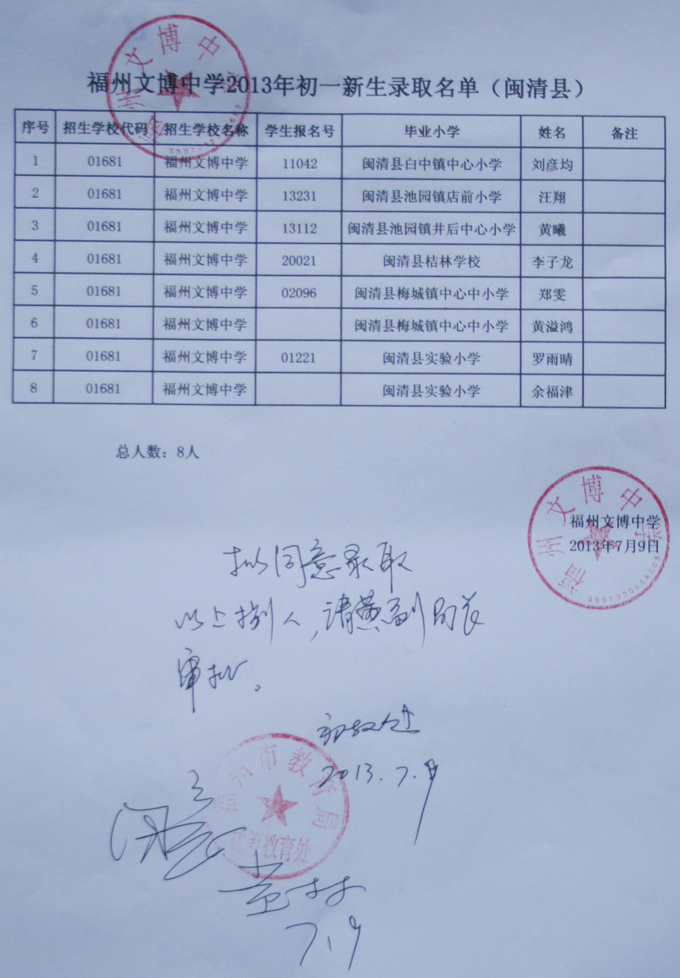 福州文博中学2013年初一新生录取名单（闽清县）
序号 招生学校代码 招生学校名称 学生报名号 毕业小学 姓名 备注
1 01681 福州文博中学 11042 闽清县白中镇中心小学 刘彦均
2 01681 福州文博中学 13231 闽清县池园镇店前小学 汪翔
3 01681 福州文博中学 13112 闽清县池园镇井后中心小学 黄曦
4 01681 福州文博中学 20021 闽清县桔林学校 李子龙
5 01681 福州文博中学 02096 闽清县梅城镇中心中小学 郑雯
6 01681 福州文博中学 闽清县梅城镇中心中小学 黄溢鸿
7 01681 福州文博中学 01221 闽清县实验小学 罗雨晴
8 01681 福州文博中学 闽清县实验小学 余福津
总人数：8人
福州文博中学
2013年7月9日
福州文博中学
拟同意录取
以上捌人，请黄副局长
审批。
初教处
2013.7.9
福州市教育局
初等教育处
7.9